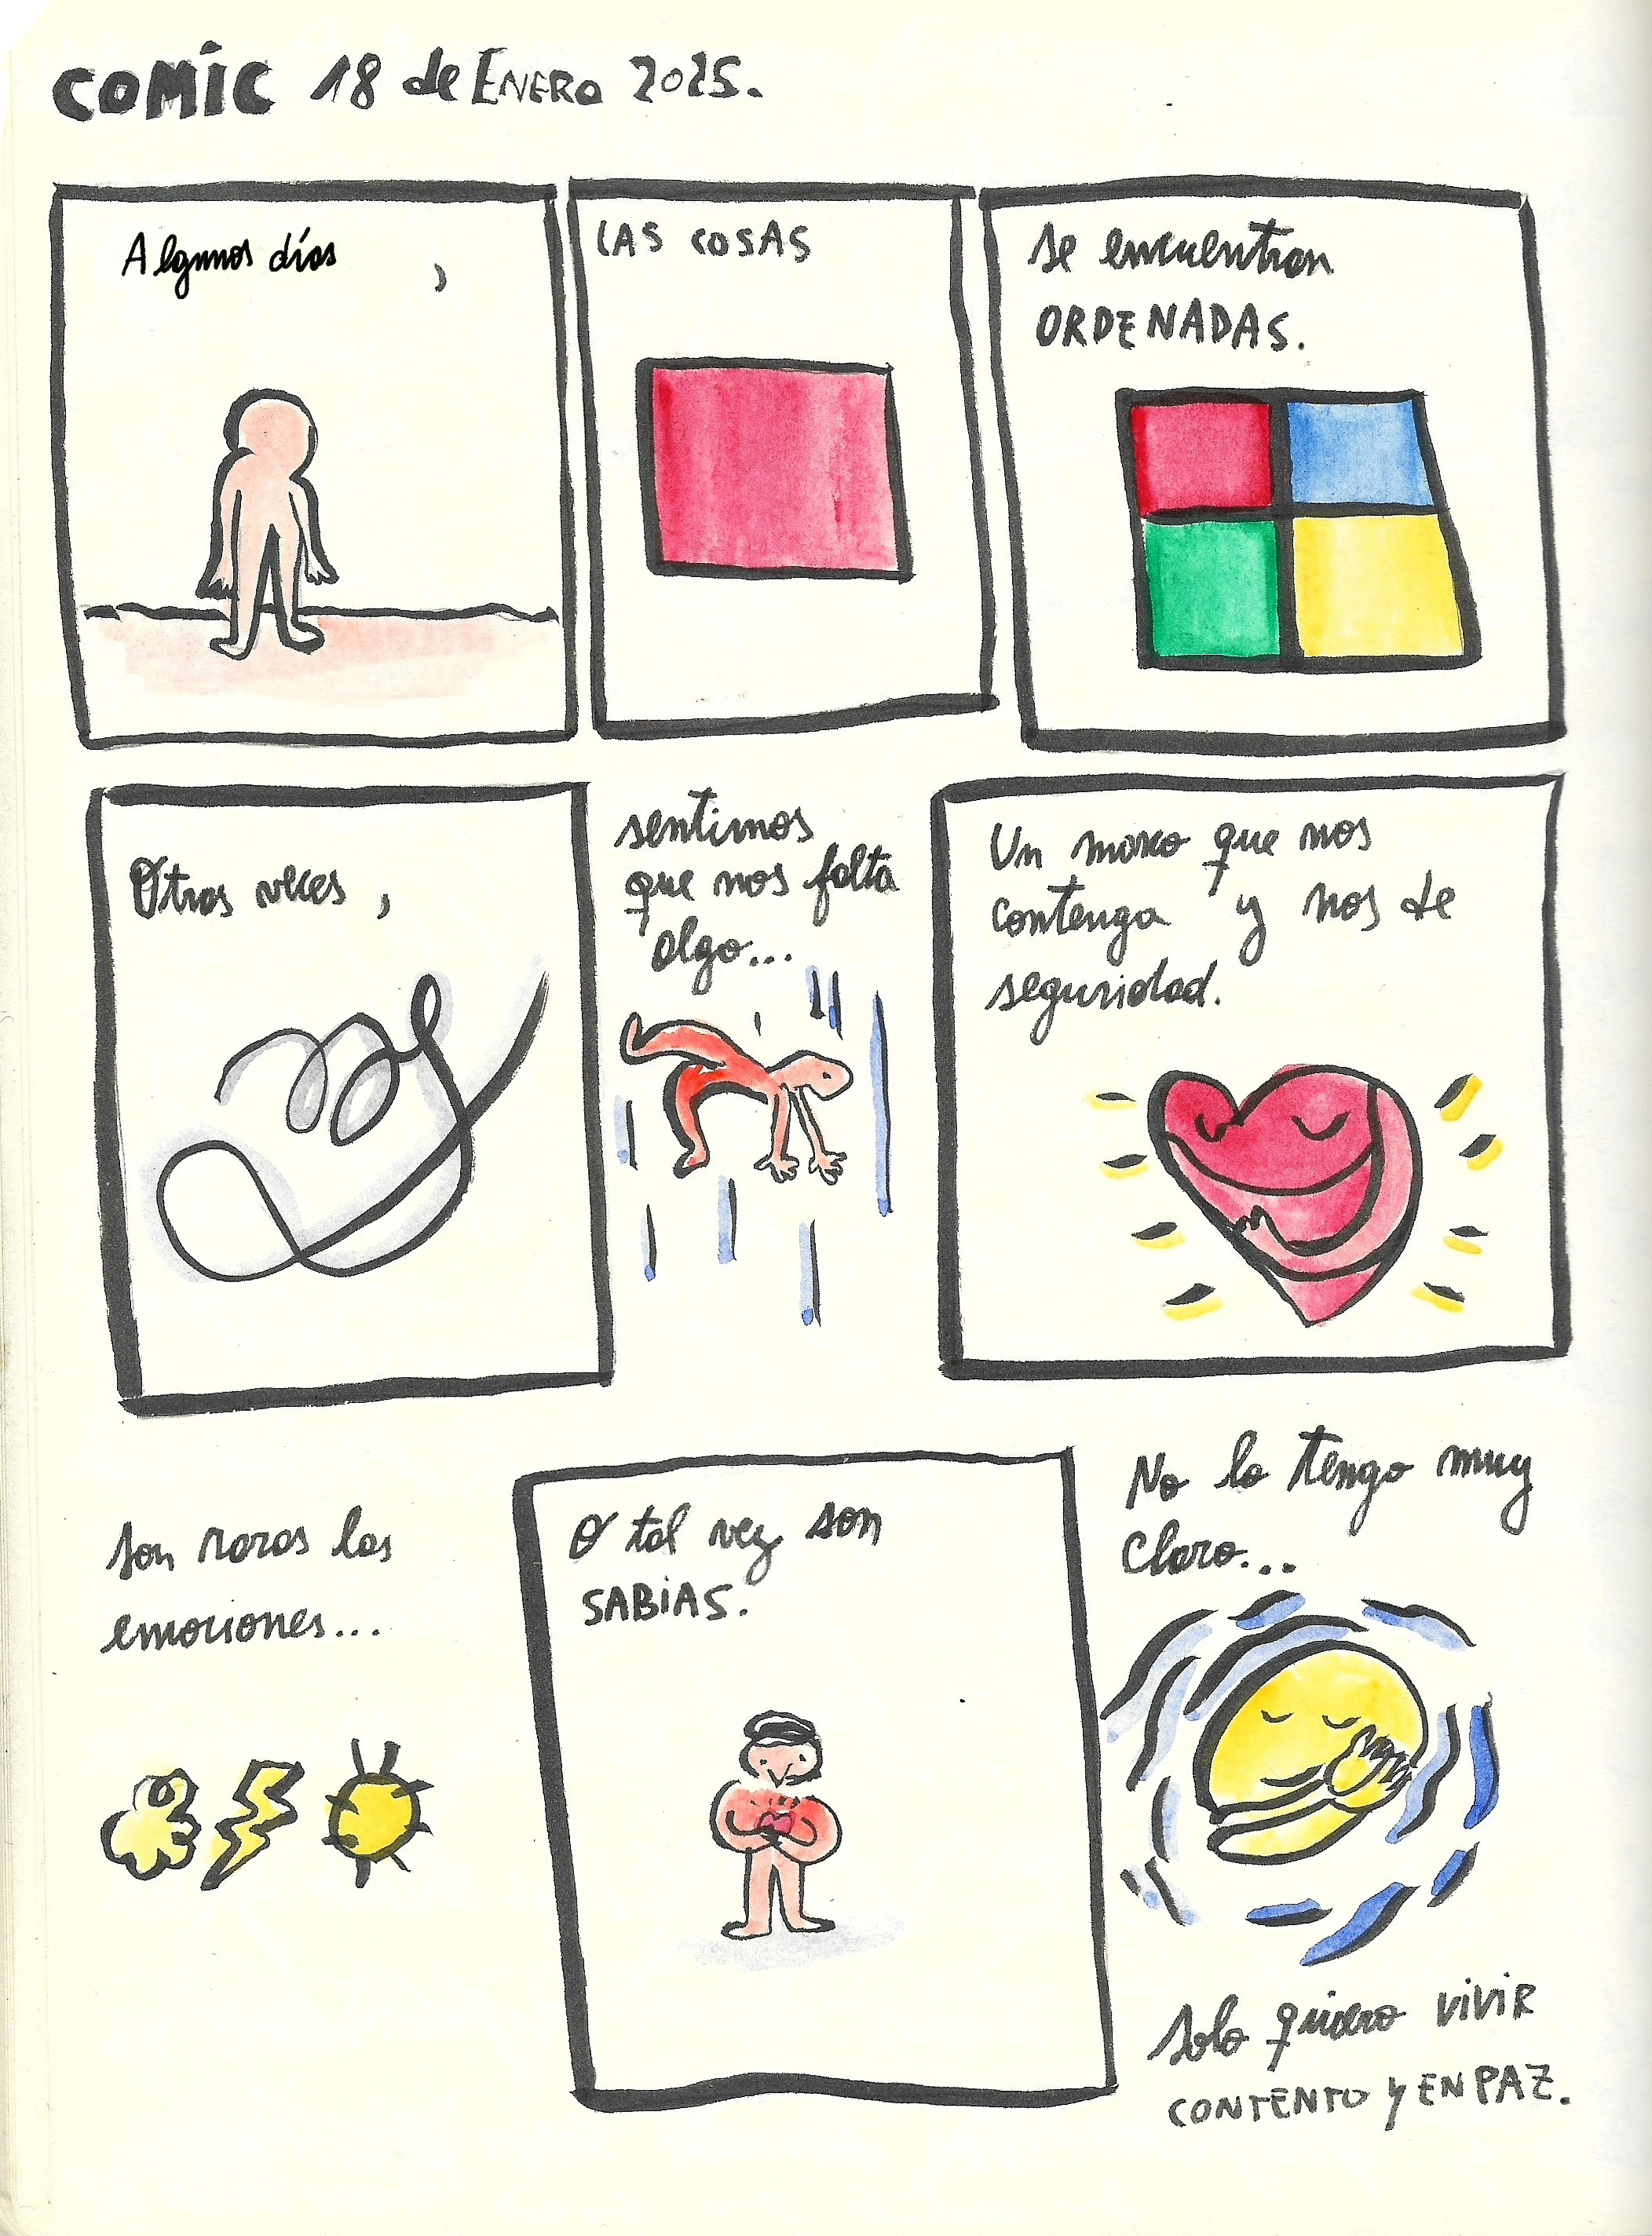 COMÍC 18 de ENERO 2025.
Algunos días ,
LAS COSAS
se encuentran
ORDENADAS.
Otras veces,
sentimos
que nos falta
algo...
Un marco que nos
contenga y nos de
seguridad.
Son raras las
emociones...
O tal vez son
SABiAS.
No lo tengo muy
claro...
Solo quiero ViViR
CONTENTO y EN PAZ.